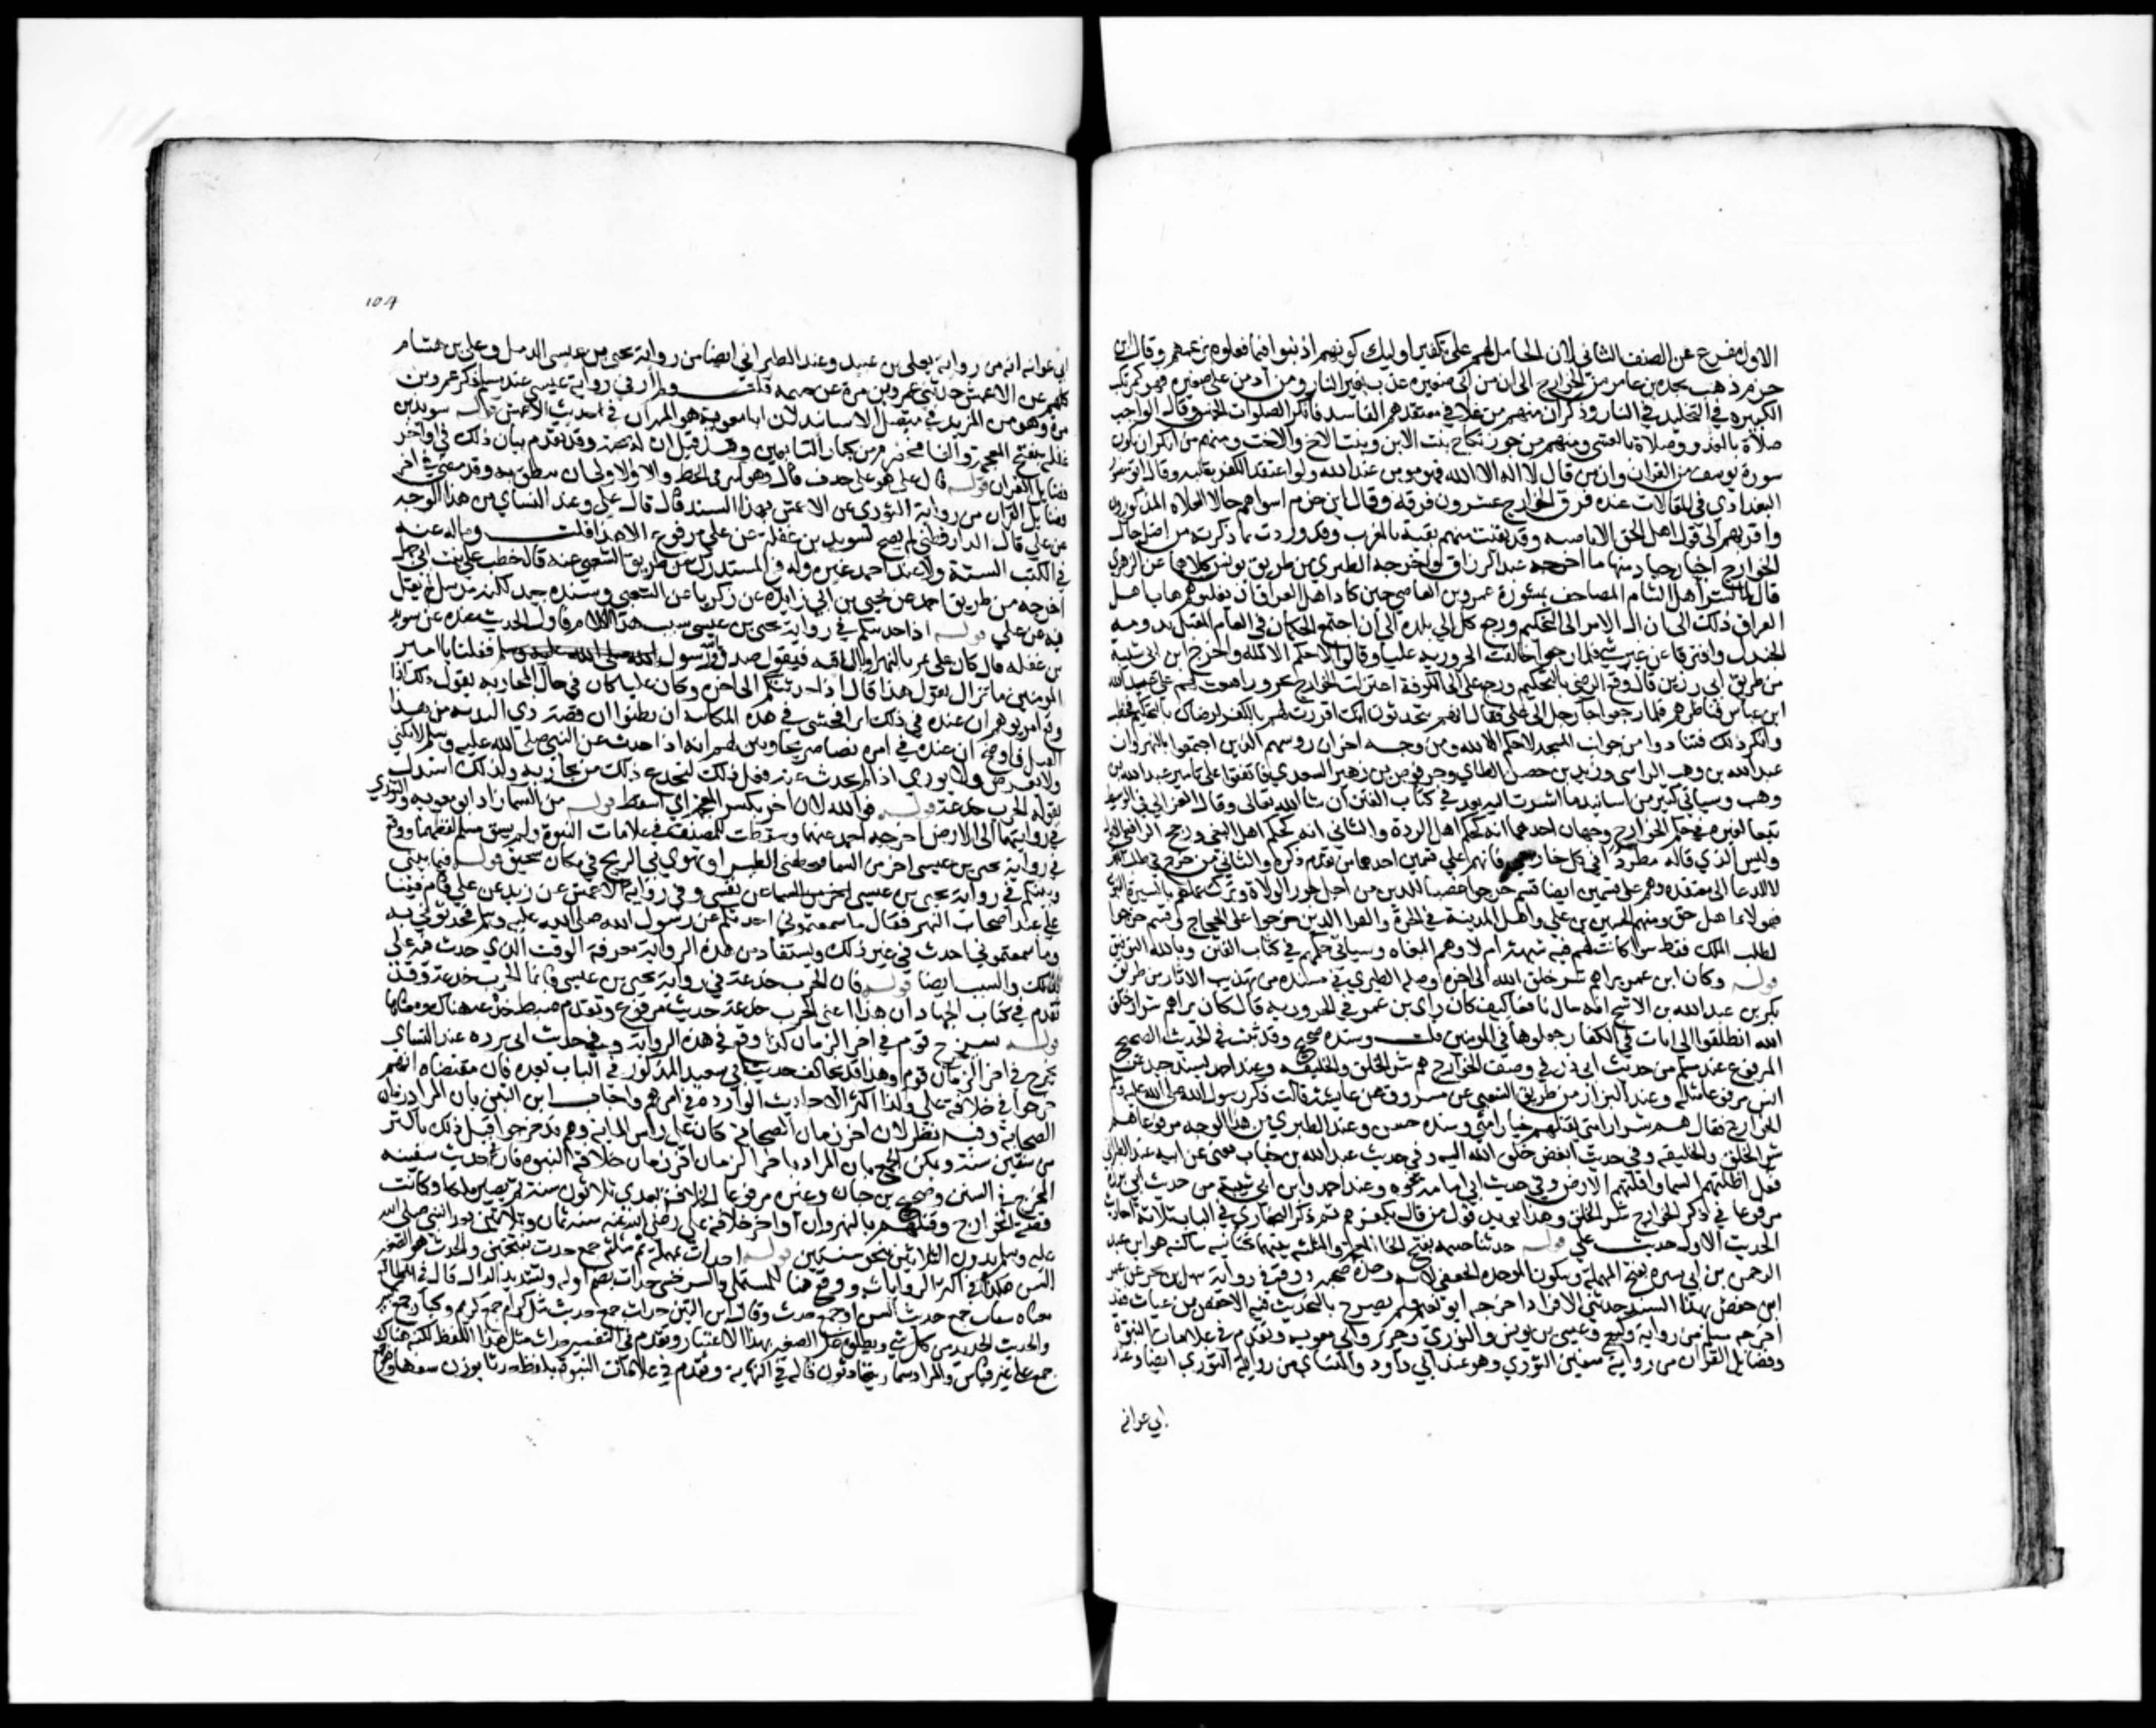 الاول مفرع عن الصنف الثاني لان الحامل لهم على تكفير اوليك كونهم اذنبوا فيما فعلوه بزعمهم وقال ابن
حزم ذهب نجدة بن عامر من الخوارج الى ان من اتى صغيره عذب بغير النار ومن ادمن على صغيره فهو كمرتكب
الكبيره في التخليد في النار وذكر ان منهم من غلا في معتقدهم الفاسد فانكر الصلوات الخمس وقال الواجب
صلاة بالغداة وصلاة بالعشي ومنهم من جوز نكاح بنت الابن وبنت الاخ والاخت ومنهم من انكر ان تكون
سورة يوسف من القران وان من قال لا اله الا الله فهو مومن عند الله ولو اعتقد الكفر بقلبه وقال ابو منصور
البغدادي في المقالات عدة فرق الخوارج عشرون فرقه وقال ابن حزم اسواهم حالا الغلاه المذكورون
واقربهم الى قول اهل الحق الاباضيه وقد بقيت منهم بقية بالمغرب وقد وردت بما ذكرته من اصل حال
الخوارج اخبار جياد منها ما اخرجه عبد الرزاق واخرجه الطبري من طريق يونس كلاهما عن الزهري
قال لما نشر اهل الشام المصاحف بمشورة عمرو بن العاصي حين كاد اهل العراق ان يغلبوهم هاب اهل
العراق ذلك الى ان آل الامر الى التحكيم ورجع كل الى بلده الى ان اجتمع الحكمان في العام المقبل بدومة
الجندل وافترقا عن غير شي فلما رجعوا خالفت الحروريه عليا وقالوا لا حكم الا لله واخرج ابن ابي شيبة
من طريق ابي رزين قال لما وقع الرضى بالتحكيم ورجع علي الى الكوفة اعتزلت الخوارج بحروراء فبعث لهم علي عبد الله
ابن عباس فناظرهم فلما رجعوا جا رجل الى علي فقال انهم يتحدثون انك اقررت لهم بالكفر لرضاك بالتحكيم فخطب
وانكر ذلك فتنادوا من جوانب المسجد لا حكم الا لله ومن وجه اخر ان روسهم الذين اجتمعوا بالنهروان
عبد الله بن وهب الراسبي وزيد بن حصن الطاي وحرقوص بن زهير السعدي فاتفقوا على تامير عبد الله بن
وهب وسياتي كثير من اسانيد ما اشرت اليه بعد في كتاب الفتن ان شا الله تعالى وقال الغزالي في الوسيط
تبعا لغيره في حكم الخوارج وجهان احدهما انه كحكم اهل الردة والثاني انه كحكم اهل البغي ورجح الرافعي الاول
وليس الذي قاله مطردا في كل خارجي فانهم على قسمين احدهما من تقدم ذكره والثاني من خرج في طلب الملك
لا للدعا الى معتقده وهم على قسمين ايضا قسم خرجوا غضبا للدين من اجل جور الولاة وترك عملهم بالسيرة النبوية
فهولاء اهل حق ومنهم الحسين بن علي واهل المدينة في الحرة والقرا الذين خرجوا على الحجاج وقسم خرجوا
لطلب الملك فقط سوا كانت لهم فيه شبهة ام لا وهم البغاه وسياتي حكمهم في كتاب الفتن وبالله التوفيق
قوله وكان ابن عمر يراهم شر خلق الله الى اخره وصله الطبري في مسنده من تهذيب الاثار من طريق
بكير بن عبد الله بن الاشج انه سال نافعا كيف كان راى بن عمر في الحروريه قال كان يراهم شرار خلق
الله انطلقوا الى ايات في الكفار جعلوها في المومنين قلت وسنده صحيح وقد ثبت في الحديث الصحيح
المرفوع عند مسلم من حديث ابي ذر في وصف الخوارج هم شر الخلق والخليقه وعند احمد بسند جيد عن
انس مرفوعا مثله وعند البزار من طريق الشعبي عن مسروق عن عايشة قالت ذكر رسول الله صلى الله عليه وسلم
الخوارج فقال هم شرار امتي يقتلهم خيار امتي وسنده حسن وعند الطبري من هذا الوجه مرفوعا هم
شر الخلق والخليقه وفي حديث ابغض خلق الله اليه وفي حديث عبد الله بن خباب يعني عن ابيه عند الطبراني
شر قتلى اظلتهم السما واقلتهم الارض وفي حديث ابي امامه نحوه وعند احمد وابن ابي شيبة من حديث ابي برزة
مرفوعا في ذكر الخوارج شر الخلق وهذا يويد قول من قال بكفرهم ثم ذكر البخاري في الباب ثلاثة احاديث
الحديث الاول حديث علي قوله حدثنا خيثمه بفتح الخاء المعجمة والمثلثه بينهما تحتانيه ساكنه هو ابن عبد
الرحمن بن ابي سبرة بفتح المهملة وسكون الموحده الجعفي لابيه وجده صحبه ووقع في رواية سهل بن بحر عن عمر
ابن حفص بهذا السند حدثني الافراد اخرجه ابو نعيم ولم يصرح بالتحديث فيه الا حفص بن غياث فقد
اخرجه مسلم من رواية وكيع وعيسى بن يونس والثوري وجرير وابي معويه وتقدم في علامات النبوة
وفضايل القران من رواية سفين الثوري وهو عند ابي داود والنساي من رواية الثوري ايضا وعند
ابي عوانه
104
ابي عوانه من رواية يعلى بن عبيد وعند الطبراني ايضا من رواية يحيى بن عيسى الرملي وعلي بن هشام
كلهم عن الاعمش حدثني عمرو بن مرة عن خيثمه قلت وقد ار في رواية عيسى عند مسلم ذكر عمرو بن
مرة وهو من المزيد في متصل الاسانيد لان ابا معوية هو الميزان في حديث الاعمش قوله سويد بن
غفله بفتح المعجمه والفا مخضرم من كبار التابعين وقد قيل ان له صحبة وقد تقدم بيان ذلك في اواخر
فضايل القران قوله قال علي هو على حذف قال وهو كثير في الخط والاولى ان ينطق به وقد مضى في اخر
فضايل القران من رواية الثوري عن الاعمش بهذا السند قال قال علي وعند النساي من هذا الوجه
عن علي قال الدارقطني لم يصح لسويد بن غفلة عن علي مرفوع الا هذا قلت وماله عنه
في الكتب الستة ولا عند احمد غيره وله في المستدرك من طريق الشعبي عنه قال خطب علي بنت ابي جهل
اخرجه من طريق احمد عن يحيى بن ابي زايدة عن زكريا عن الشعبي وسنده جيد لكنه مرسل لم يقل
فيه عن علي قوله اذا حدثتكم في رواية يحيى بن عيسى سبب لهذا الكلام فاول الحديث عنده عن سويد
بن غفله قال كان علي يمر بالنهر وبالساقيه فيقول صدق الله ورسوله فقلنا يا امير
المومنين ما تزال تقول هذا قال اذا حدثتكم الى اخره وكان علي كان في حال المحاربه يقول ذلك اذا
وقع امر يوهم ان عنده في ذلك اثرا فخشي في هذه الكاينة ان يظنوا ان قصة ذي الثدية من هذا
القبيل فاوضح ان عنده في امره نصا صريحا وبين لهم انه اذا حدث عن النبي صلى الله عليه وسلم لا يكني
ولا يعرض ولا يوري واذا لم يحدث عنه فعل ذلك ليخدع بذلك من يحاربه ولذلك استدل
بقوله الحرب خدعة قوله فوالله لان اخر بكسر المعجمة اي اسقط قوله من السما زاد ابو معويه والثوري
في روايتهما الى الارض اخرجه احمد عنهما وسقطت للمصنف في علامات النبوة ولم يسق مسلم لفظهما ووقع
في رواية يحيى بن عيسى اخر من السما فتخطفني الطير او تهوي بي الريح في مكان سحيق قوله فيما بيني
وبينكم في رواية يحيى بن عيسى عن نفسي وفي رواية الاعمش عن زيد عن علي قام فينا
علي عند اصحاب النهر فقال ما سمعتموني احدثكم عن رسول الله صلى الله عليه وسلم فحدثوني به
وما سمعتموني احدث في غير ذلك ويستفاد من هذه الرواية معرفة الوقت الذي حدث فيه علي
بذلك والسبب ايضا قوله فان الحرب خدعة في رواية يحيى بن عيسى فانما الحرب خدعة وقد
تقدم في كتاب الجهاد ان هذا اعني الحرب خدعة حديث مرفوع وتقدم ضبط خدعه هناك ومعناها
قوله سيخرج قوم في اخر الزمان كذا وقع في هذه الرواية وفي حديث ابي برزه عند النساي
يخرج في اخر الزمان قوم وهذا قد يخالف حديث ابي سعيد المذكور في الباب بعده فان مقتضاه انهم
خرجوا في خلافة علي ولذا اكثر الاحاديث الوارده في امرهم واجاب ابن التين بان المراد زمان
الصحابة وفيه نظر لان اخر زمان الصحابة كان على راس المايه وهم قد خرجوا قبل ذلك باكثر
من ستين سنة ويمكن الجمع بان المراد باخر الزمان اخر زمان خلافة النبوه فان في حديث سفينه
المخرج في السنن وصحيح بن حبان وغيره مرفوعا الخلافه بعدي ثلاثون سنة ثم تصير ملكا وكانت
قصة الخوارج وقتلهم بالنهروان اواخر خلافة علي رضي الله عنه سنة ثمان وثلاثين بعد النبي صلى الله
عليه وسلم بدون الثلاثين بنحو سنتين قوله احداث بمهملة ثم مثلثة جمع حدث بفتحتين والحدث هو الصغير
السن هكذا في اكثر الروايات ووقع هنا للمستملي والسرخسي حداث بضم اوله وتشديد الدال قال في المطالع
معناه شباب جمع حديث السن او جمع حدث وقال ابن التين حداث جمع حديث مثل كرام جمع كريم وكبار جمع كبير
والحديث الجديد من كل شي ويطلق على الصغير بهذا الاعتبار وتقدم في التفسير حداث مثل هذا اللفظ لكنه هناك
جمع على غير قياس والمراد سمار يتحادثون قاله في النهايه وتقدم في علامات النبوة بلفظ حدثا بوزن سفها وهو جمع